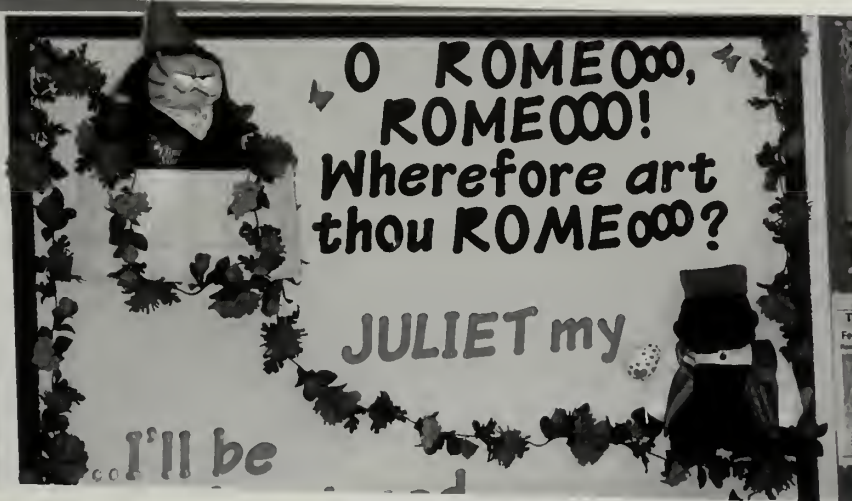 O ROMEOOO,
ROMEOOO!
Wherefore art
thou ROMEOOO?
JULIET my
...I'll be